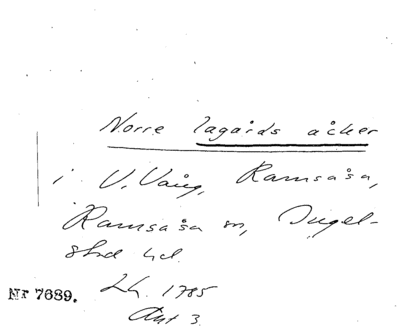 Norre lagårds åcker
i V. Vång, Ramsåsa,
Ramsåsa sn, Ingel-
stad hd.
Lh. 1785
Akt 3.
Nr 7689.